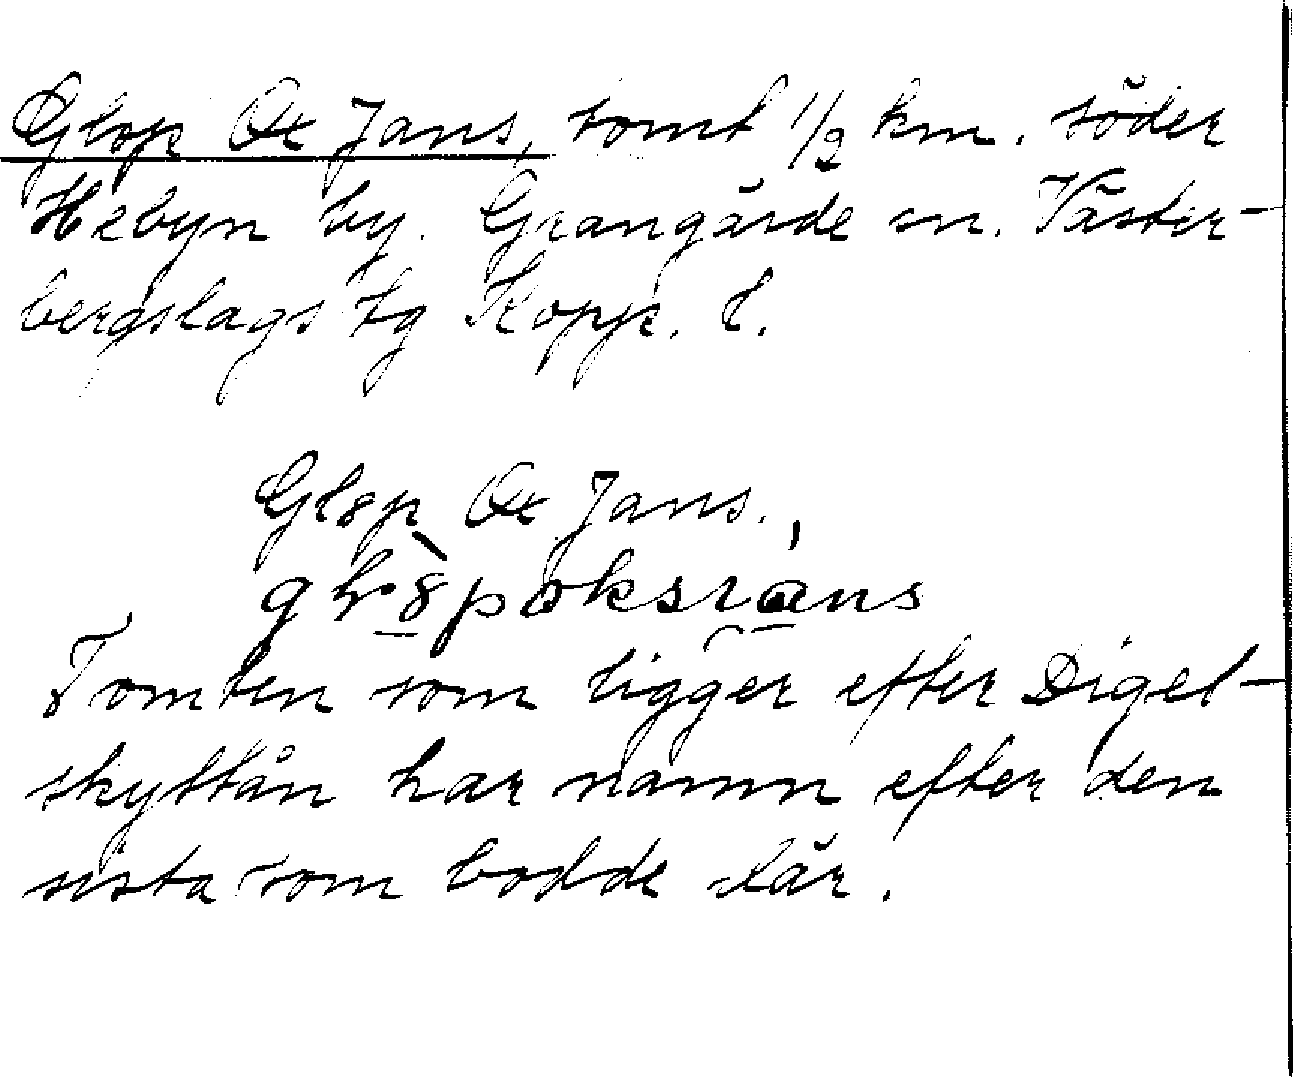 Glop Ox Jans, tomt 1/2 km. söder
Hebyn by. Grangärde sn. Väster-
bergslags tg Kopp. l.
Glop Ox Jans.
Tomten som ligger efter Digel-
skyttån har namn efter den
sista som bodde där.